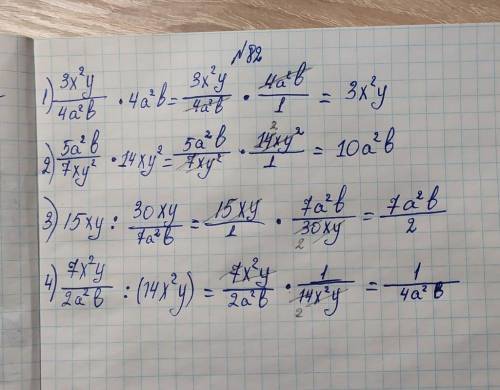 №82
1) 3x²y/4a²b · 4a²b = 3x²y/4a²b · 4a²b/1 = 3x²y
2) 5a²b/7xy² · 14xy² = 5a²b/7xy² · 14xy²/1 2 = 10a²b
3) 15xy : 30xy/7a²b = 15xy/1 · 7a²b/30xy 2 = 7a²b/2
4) 7x²y/2a²b : (14x²y) = 7x²y/2a²b · 1/14x²y 2 = 1/4a²b